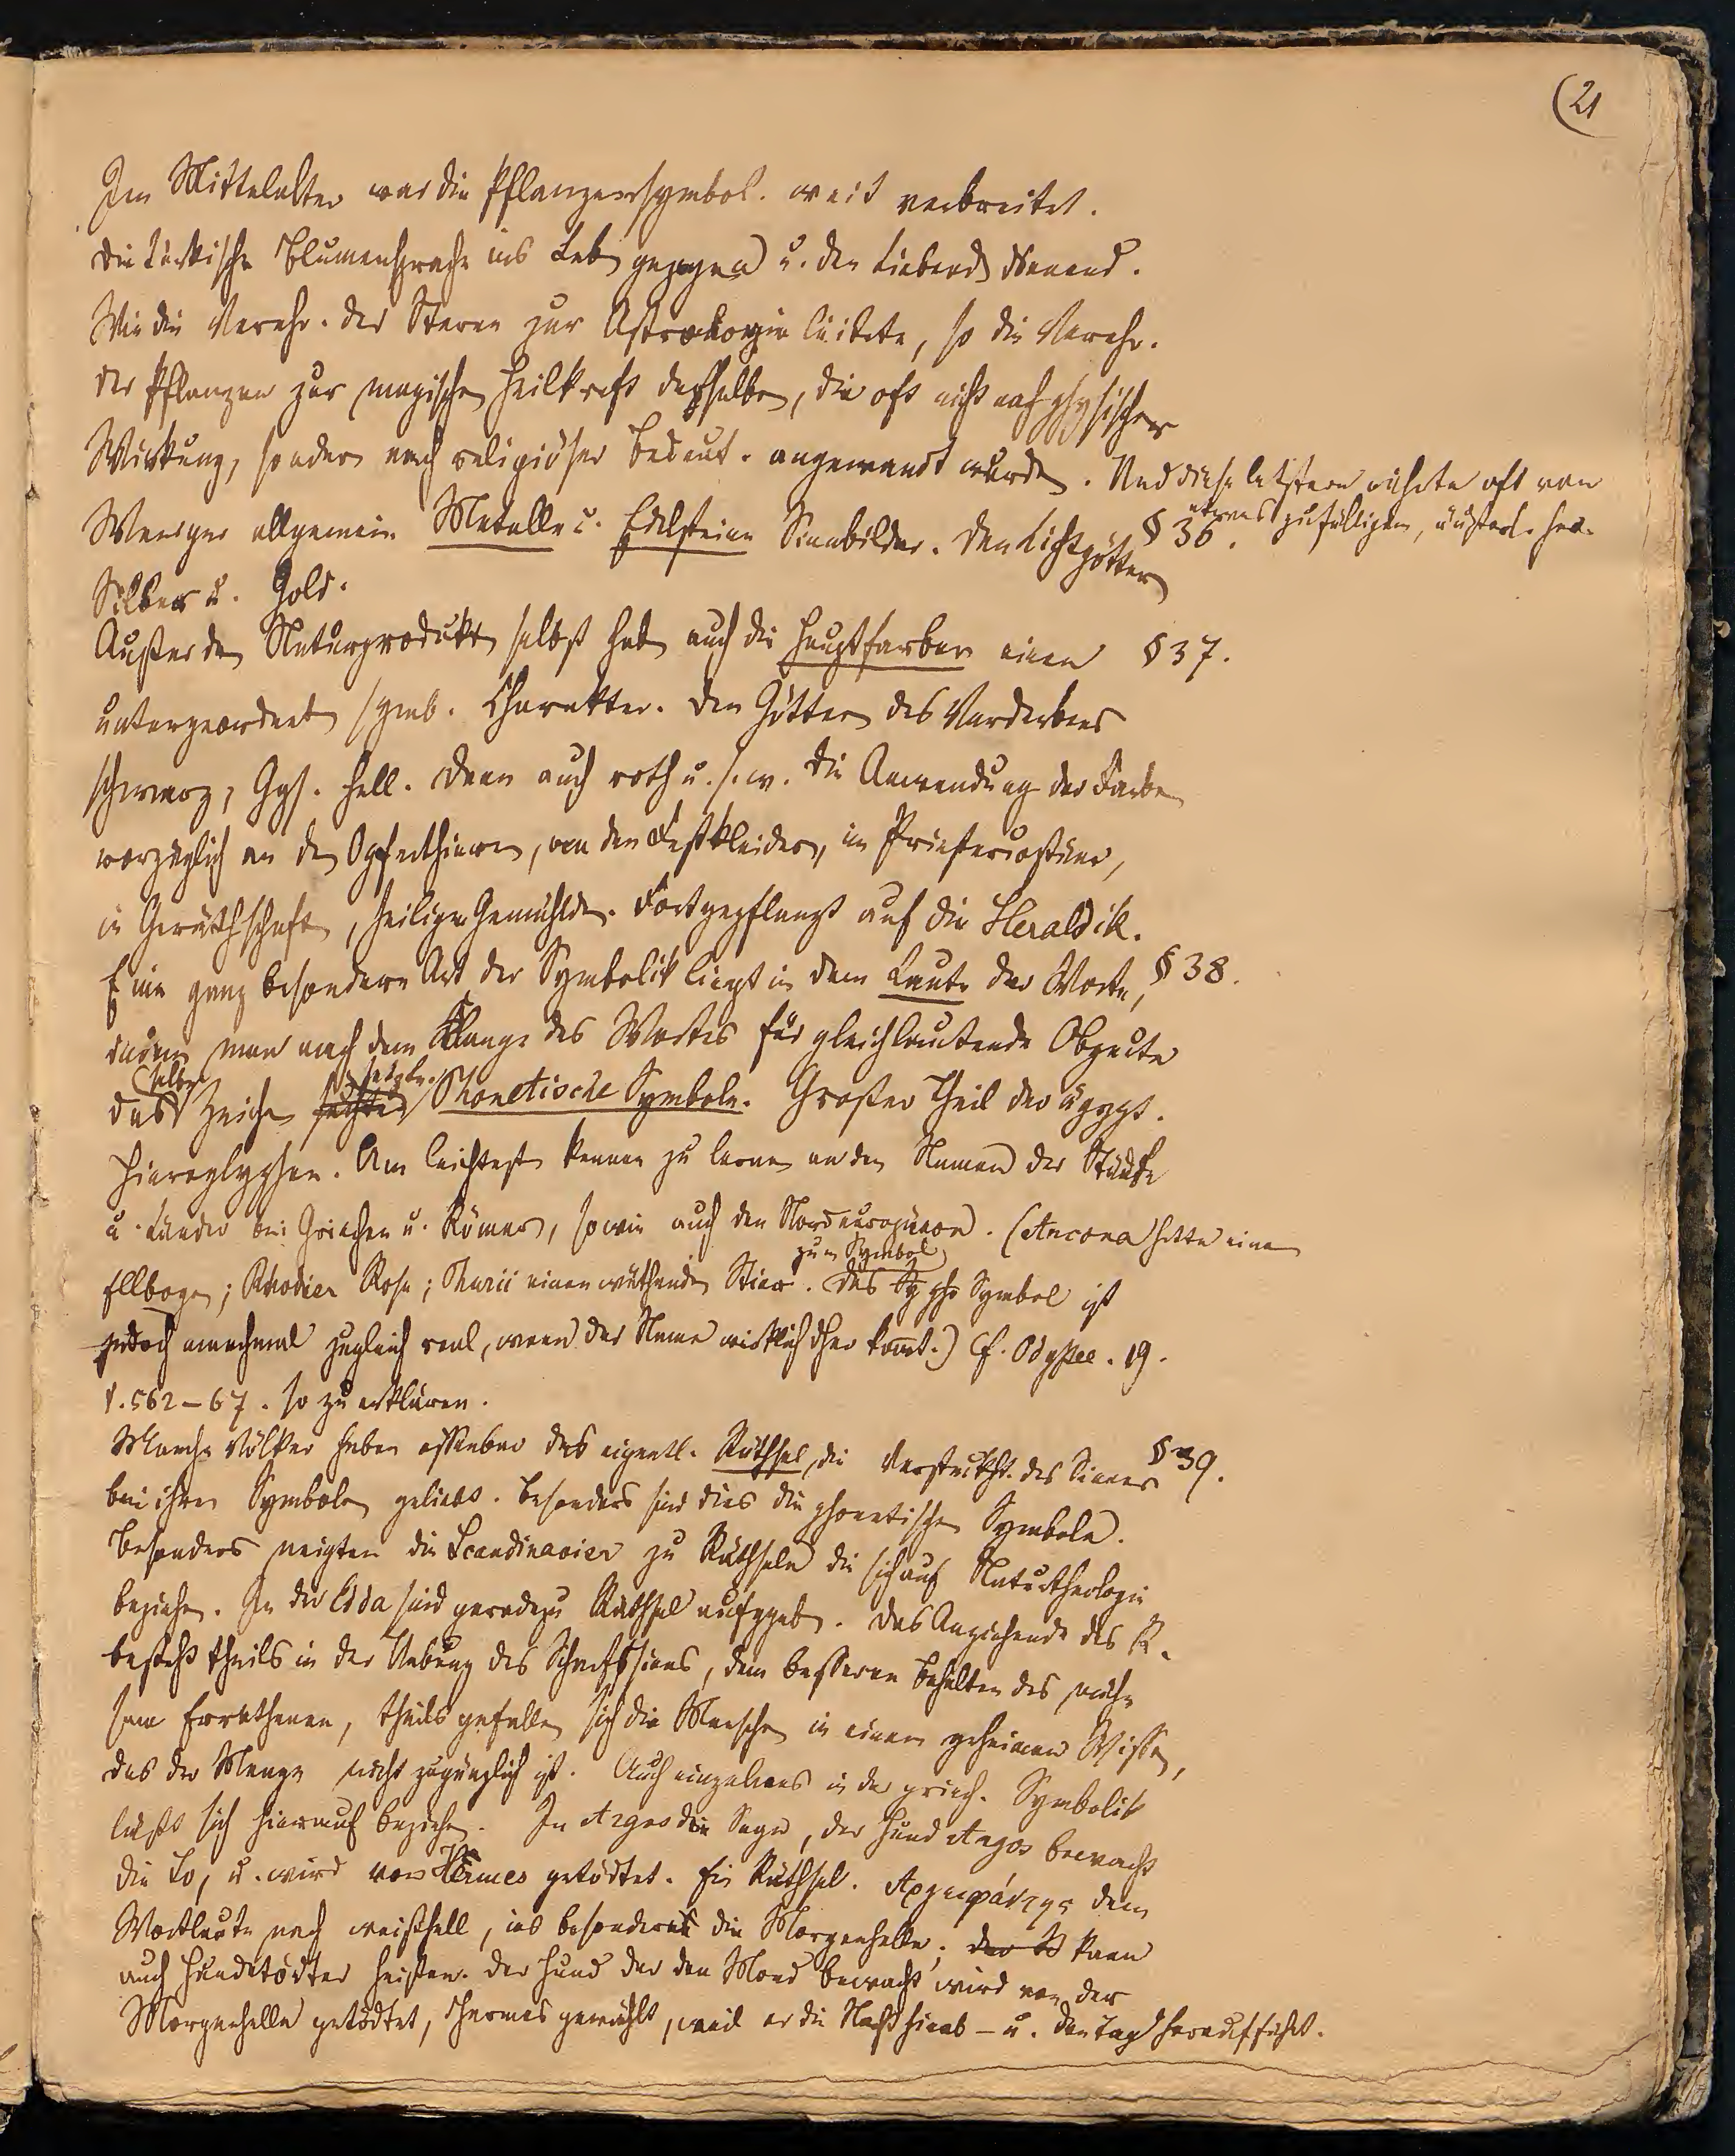 (21
Im Mittelalter war die Pflanzensymbol. weit verbreitet.
Die türkische Blumensprache ins Leb gezogen u. den Liebend dienend.
Wie die Verehr. der Sterne zur Astrologie leitete, so die Verehr.
der Pflanzen zur magischen Heilkraft derselben, die oft nicht nach physischer
Wirkung, sondern nach religiöser Bedeut. angewandt wurden. Und diese letztere rührte oft von
etwas zufälligem, äußerl. her.
Weniger allgemein Metalle u. Edelsteine Sinnbilder. Den Lichtgöttern § 36.
Silber u. Gold.
Außer den Naturprodukten selbst hab auch die Hauptfarben einen § 37.
untergeordneten symb. Charakter. Den Göttern des Verderbens
schwarz, Ggs. hell. Dann auch roth u. s. w. Die Anwendung der Farben
vorzüglich an den Opferthieren, von den Festkleidern, im Priestercostüme,
in Geräthschaften, heiligen Gemählden. Fortgepflanzt auf die Heraldik.
Eine ganz besondere Art der Symbolik liegt in dem Laute der Worte, § 38.
indem man nach dem Klange des Wortes für gleichlautende Objecte
dasselbe Zeichen setzte. Phonetische Symbole. Großer Theil der ägypt.
Hieroglyphen. Am leichtesten kennen zu lernen an den Namen der Städte
u. Länder bei Griechen u. Römern, sowie auch den Nordeuropäern. (Ancona hatte einen
zum Symbol
Ellbogen; Rhodier Rose; Thurii einen wüthenden Stier. Das Sy pho Symbol ist
jedoch manchmal zugleich real, wenn der Name wirklich dher kommt.) Cf. Odyssee. 19.
v. 562–67. so zu erklären.
Manche Völker haben offenbar das eigentl. Räthsel, die Verstecktht. des Sinnes § 39.
bei ihren Symbolen geliebt. Besonders sind dies die phonetischen Symbole.
Besonders neigten die Scandinavier zu Räthseln die sich auf Naturtheologie
beziehen. In der Edda sind geradezu Räthsel aufggeb. Das Anziehende des R.
besteht theils in der Uebung des Scharfsinns, dem besseren Behalten des müh-
sam Errathenen, theils gefallen sich die Menschen in einem geheimen Wissen,
das der Menge nicht zugänglich ist. Auch einzelnes in der griech. Symbolik
läßt sich hierauf beziehen. In Argos die Sage, der Hund Argos bewacht
die Io, u. wird von Hermes getödtet. Ein Räthsel. Αργειφόντης dem
Wortlaute nach weißhell, ins besondere die Morgenhelle; der B kann
auch Hundetödter heißen. Der Hund der den Mond bewacht wird von der
Morgenhelle getödtet, Hermes gewählt, weil er die Nacht hinab – u. den Tag heraufführt.